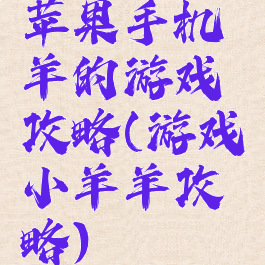 苹果手机
羊的游戏
攻略(游戏
小羊羊攻
略)